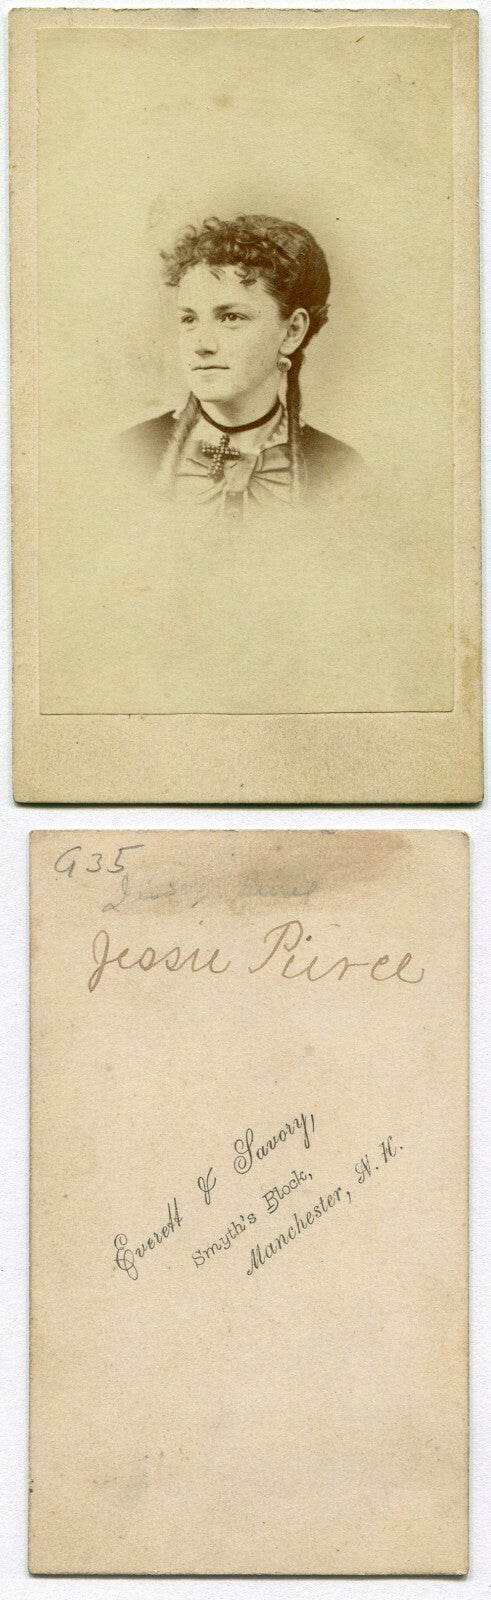 G35
Jessie Pierce
Everett & Savory,
Smyth's Block,
Manchester, N. H.